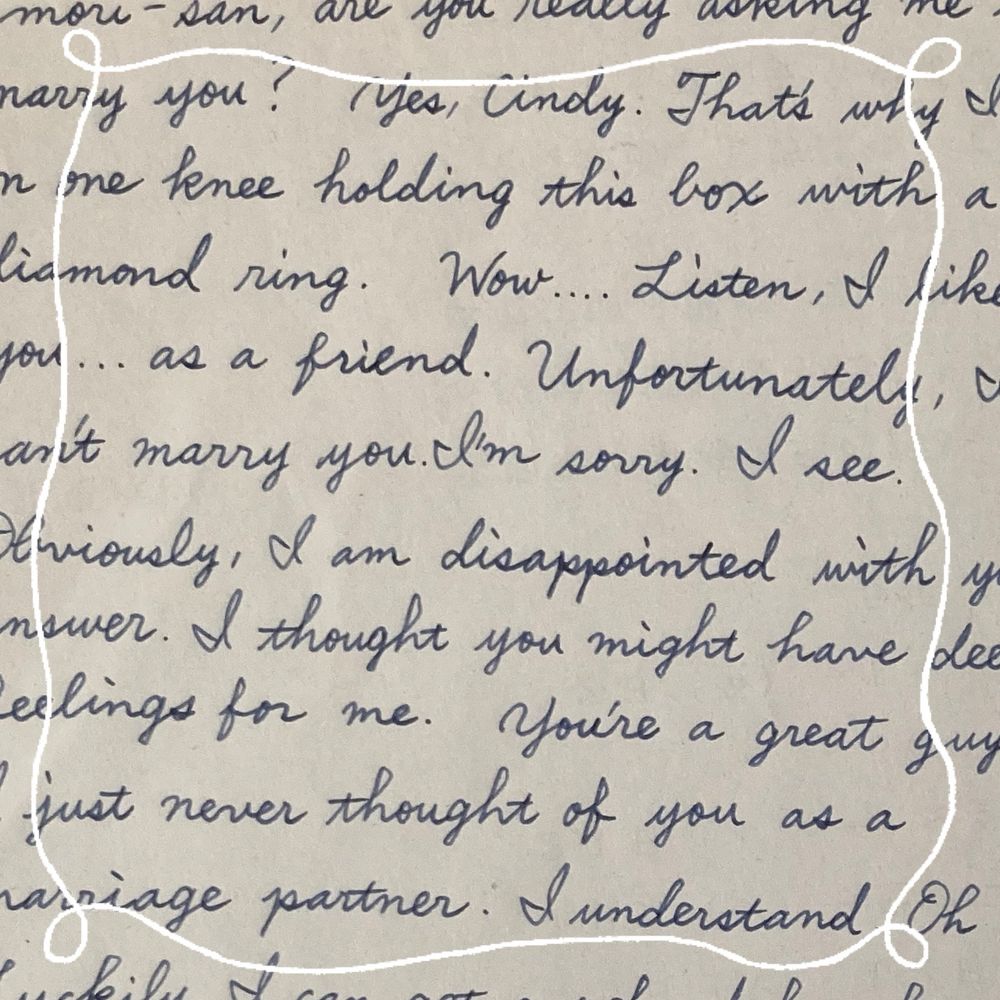 mori-san, are you really asking me
marry you? Yes, Cindy. That's why I
one knee holding this box with a
diamond ring. Wow.... Listen, I like
you... as a friend. Unfortunately, I
can't marry you. I'm sorry. I see.
Obviously, I am disappointed with
answer. I thought you might have
feelings for me. You're a great guy
I just never thought of you as a
marriage partner. I understand Oh
Luckily I can get